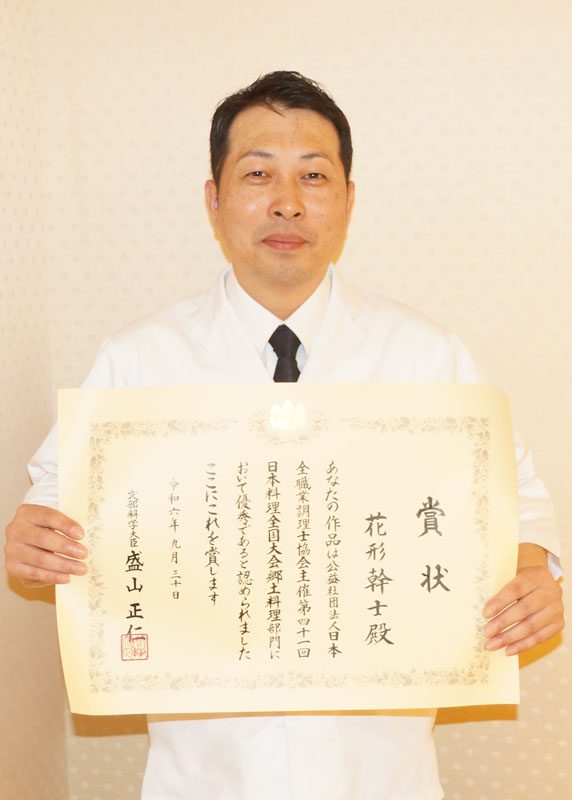 賞状
花形幹士殿
あなたの作品は公益社団法人日本
全職業調理士協会主催第四十一回
日本料理全国大会郷土料理部門に
おいて優秀であると認められました
ここにこれを賞します
令和六年九月三十日
文部科学大臣 盛山正仁